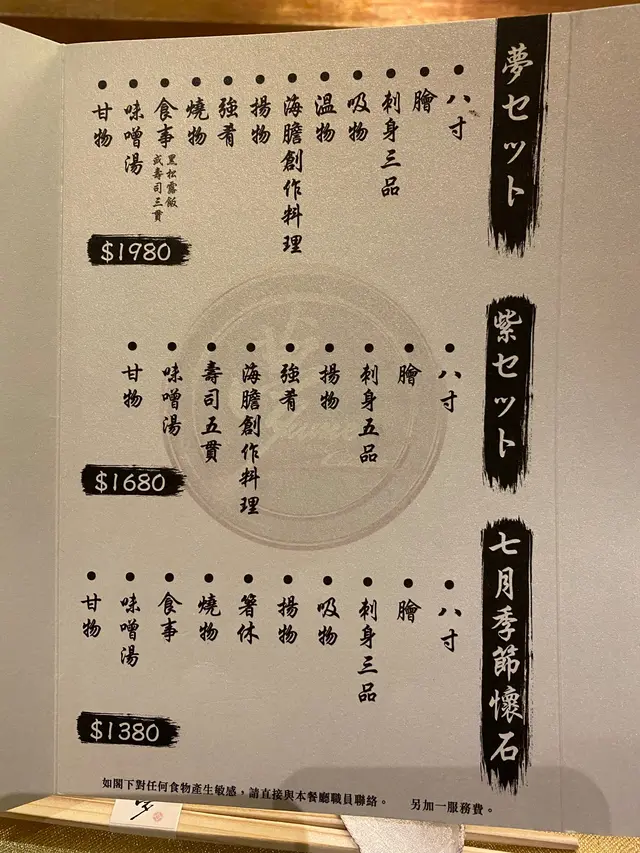 夢セット
八寸
膾
刺身三品
吸物
温物
海膽創作料理
揚物
強肴
燒物
食事
黑松露飯
或壽司三貫
味噌湯
甘物
$1980
紫セット
八寸
膾
刺身五品
揚物
強肴
海膽創作料理
壽司五貫
味噌湯
甘物
$1680
七月季節懷石
八寸
膾
刺身三品
吸物
揚物
箸休
燒物
食事
味噌湯
甘物
$1380
如閣下對任何食物產生敏感，請直接與本餐廳職員聯絡。 另加一服務費。